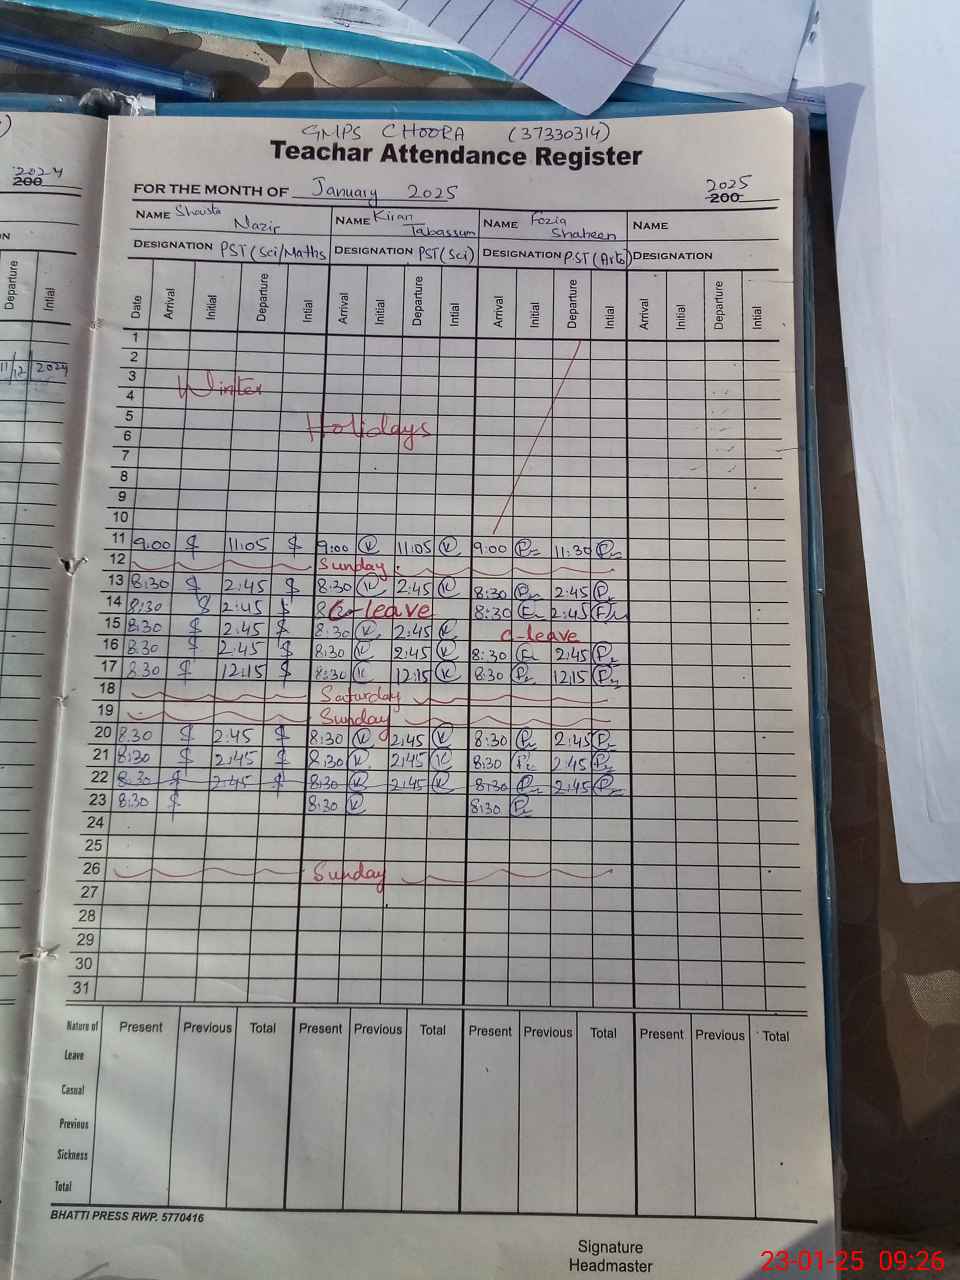 GMPS CHOORA (37330314)
Teachar Attendance Register
2024
200
FOR THE MONTH OF January 2025
2025
200
NAME Shaista Nazir NAME Kiran Tabassum NAME Fozia Shaheen NAME
DESIGNATION PST (Sci/Maths DESIGNATION PST (Sci) DESIGNATION PST (Arts) DESIGNATION
Departure Intial Date Arrival Initial Departure Intial Arrival Initial Departure Intial Arrival Initial Departure Intial Arrival Initial Departure Intial
1
2
11/12/2024
3
4 Winter
5
6 Holidays
7
8
9
10
11 9:00 11:05 9:00 K 11:05 K 9:00 11:30
12 Sunday
13 8:30 2:45 8:30 K 2:45 K 8:30 2:45
14 8:30 2:45 C-leave 8:30 2:45
15 8:30 2:45 8:30 K 2:45 K C-leave
16 8:30 2:45 8:30 K 2:45 K 8:30 2:45
17 8:30 12:15 8:30 K 12:15 K 8:30 12:15
18 Saturday
19 Sunday
20 8:30 2:45 8:30 K 2:45 K 8:30 2:45
21 8:30 2:45 8:30 K 2:45 K 8:30 2:45
22 8:30 2:45 8:30 K 2:45 K 8:30 2:45
23 8:30 8:30 K 8:30
24
25
26 Sunday
27
28
29
30
31
Nature of Present Previous Total Present Previous Total Present Previous Total Present Previous Total
Leave
Casual
Previous
Sickness
Total
BHATTI PRESS RWP. 5770416
Signature
Headmaster
23-01-25 09:26